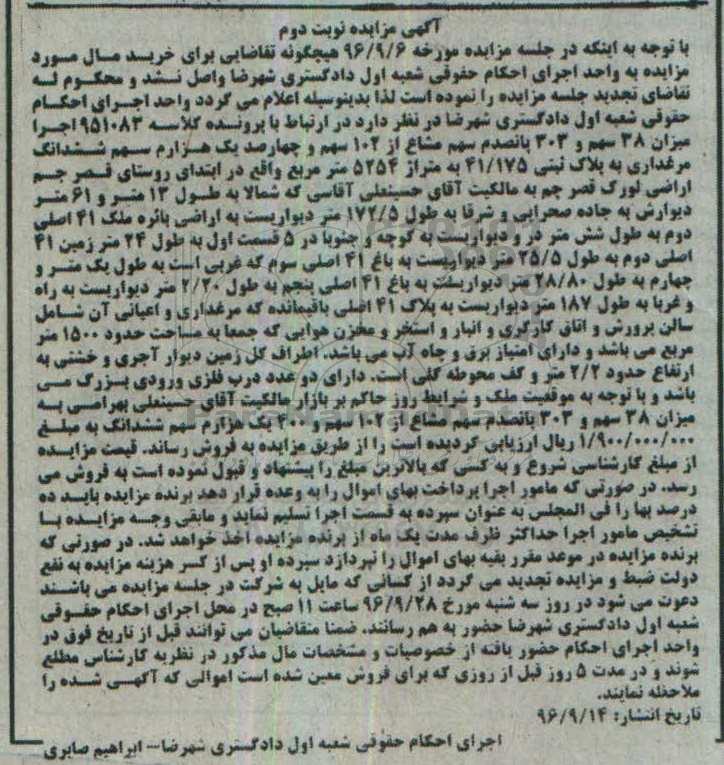 آگهی مزایده نوبت دوم
با توجه به اینکه در جلسه مزایده مورخه ۹۶/۹/۶ هیچگونه تقاضایی برای خرید مال مورد
مزایده به واحد اجرای احکام حقوقی شعبه اول دادگستری شهرضا واصل نشد و محکوم له
تقاضای تجدید جلسه مزایده را نموده است لذا بدینوسیله اعلام می گردد واحد اجرای احکام
حقوقی شعبه اول دادگستری شهرضا در نظر دارد در ارتباط با پرونده کلاسه ۹۵۱۰۸۳ اجرا
میزان ۳۸ سهم و ۳۰۳ پانصدم سهم مشاع از ۱۰۲ سهم و چهارصد یک هزارم سهم ششدانگ
مرغداری به پلاک ثبتی ۴۱/۱۷۵ به متراژ ۵۲۵۴ متر مربع واقع در ابتدای روستای قصر چم
اراضی لورک قصر چم به مالکیت آقای حسینعلی آقاسی که شمالا به طول ۱۳ متر و ۶۱ متر
دیوارش به جاده صحرایی و شرقا به طول ۱۷۲/۵ متر دیواریست به اراضی بائره ملک ۴۱ اصلی
دوم به طول شش متر در و دیواریست به کوچه و جنوبا در ۵ قسمت اول به طول ۲۴ متر زمین ۴۱
اصلی دوم به طول ۲۵/۵ متر دیواریست به باغ ۴۱ اصلی سوم که غربی است به طول یک متر و
چهارم به طول ۲۸/۸۰ متر دیواریست به باغ ۴۱ اصلی پنجم به طول ۲/۲۰ متر دیواریست به راه
و غربا به طول ۱۸۷ متر دیواریست به پلاک ۴۱ اصلی باقیمانده که مرغداری و اعیانی آن شامل
سالن پرورش و اتاق کارگری و انبار و استخر و مخزن هوایی که جمعا به مساحت حدود ۱۵۰۰ متر
مربع می باشد و دارای امتیاز برق و چاه آب می باشد. اطراف کل زمین دیوار آجری و خشتی به
ارتفاع حدود ۲/۲ متر و کف محوطه گلی است. دارای دو عدد درب فلزی ورودی بزرگ می
باشد و با توجه به موقعیت ملک و شرایط روز حاکم بر بازار مالکیت آقای حسینعلی بهرامی به
میزان ۳۸ سهم و ۳۰۳ پانصدم سهم مشاع از ۱۰۲ سهم و ۴۰۰ یک هزارم سهم ششدانگ به مبلغ
۱/۹۰۰/۰۰۰/۰۰۰ ریال ارزیابی گردیده است را از طریق مزایده به فروش رساند. قیمت مزایده
از مبلغ کارشناسی شروع و به کسی که بالاترین مبلغ را پیشنهاد و قبول نموده است به فروش می
رسد. در صورتی که مامور اجرا پرداخت بهای اموال را به وعده قرار دهد برنده مزایده باید ده
درصد بها را فی المجلس به عنوان سپرده به قسمت اجرا تسلیم نماید و مابقی وجه مزایده با
تشخیص مامور اجرا حداکثر ظرف مدت یک ماه از برنده مزایده اخذ خواهد شد. در صورتی که
برنده مزایده در موعد مقرر بقیه بهای اموال را نپردازد سپرده او پس از کسر هزینه مزایده به نفع
دولت ضبط و مزایده تجدید می گردد از کسانی که مایل به شرکت در جلسه مزایده می باشند
دعوت می شود در روز سه شنبه مورخ ۹۶/۹/۲۸ ساعت ۱۱ صبح در محل اجرای احکام حقوقی
شعبه اول دادگستری شهرضا حضور به هم رسانند. ضمنا متقاضیان می توانند قبل از تاریخ فوق در
واحد اجرای احکام حضور یافته از خصوصیات و مشخصات مال مذکور در نظریه کارشناس مطلع
شوند و در مدت ۵ روز قبل از روزی که برای فروش معین شده است اموالی که آگهی شده را
ملاحظه نمایند.
تاریخ انتشار: ۹۶/۹/۱۴
اجرای احکام حقوقی شعبه اول دادگستری شهرضا– ابراهیم صابری